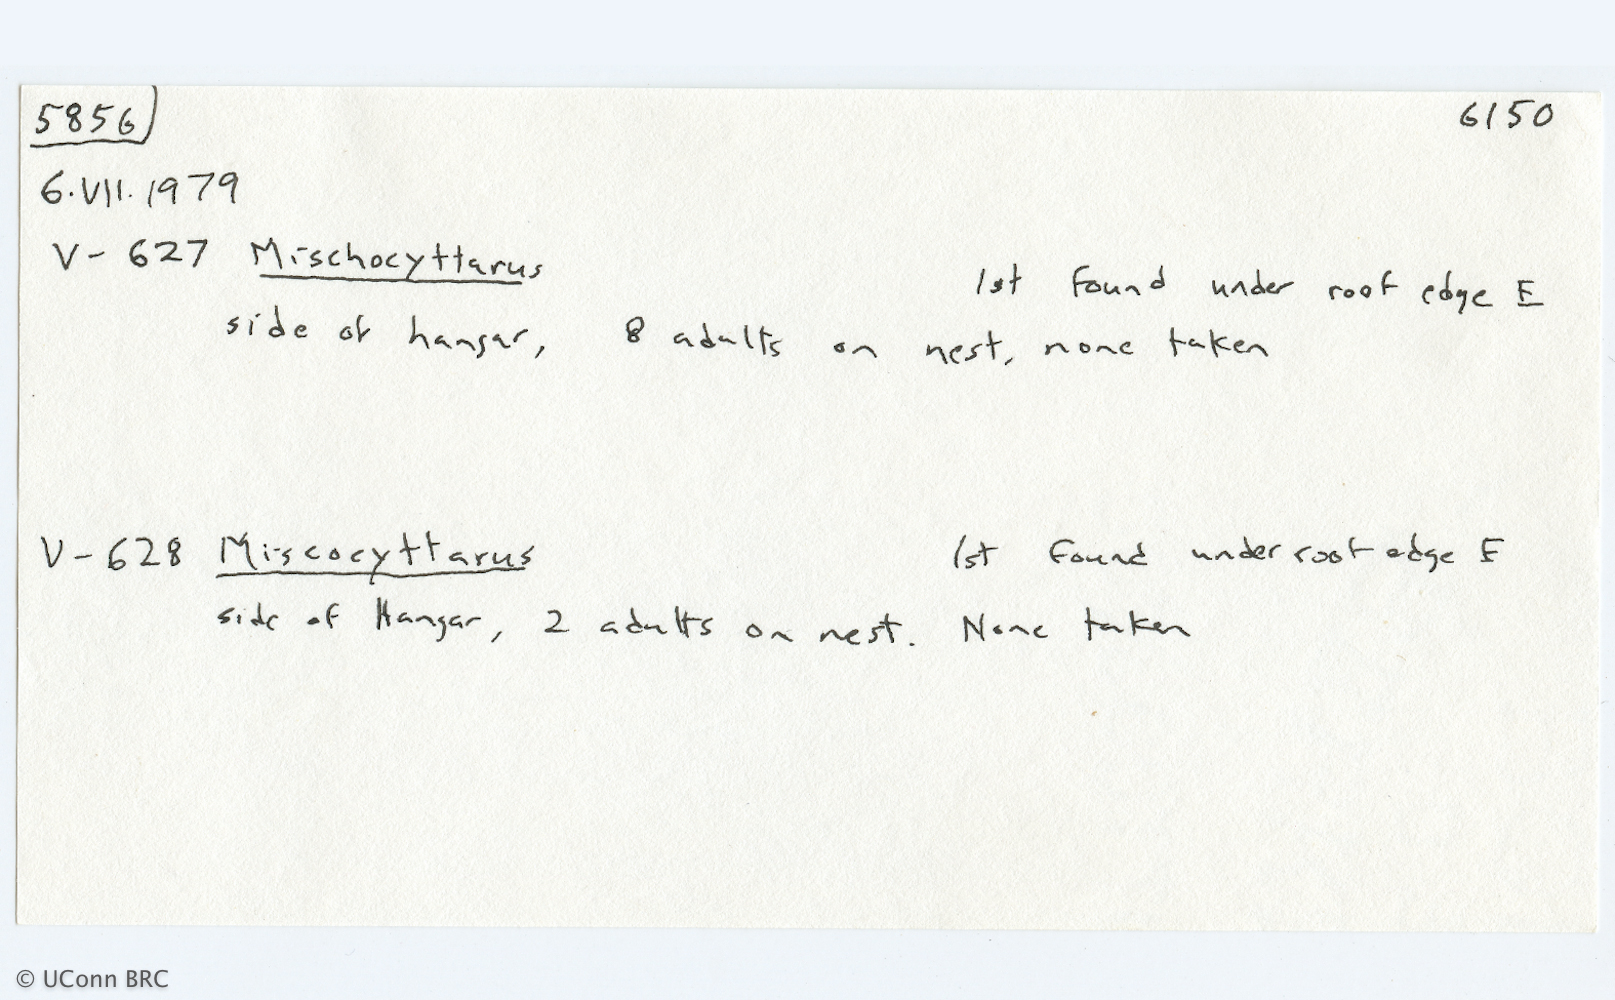 5856 6150
6.VII.1979
V-627 Mischocyttarus 1st Found under roof edge E
side of hangar, 8 adults on nest, none taken
V-628 Miscocyttarus 1st Found under roof edge E
side of Hangar, 2 adults on nest. None taken
© UConn BRC